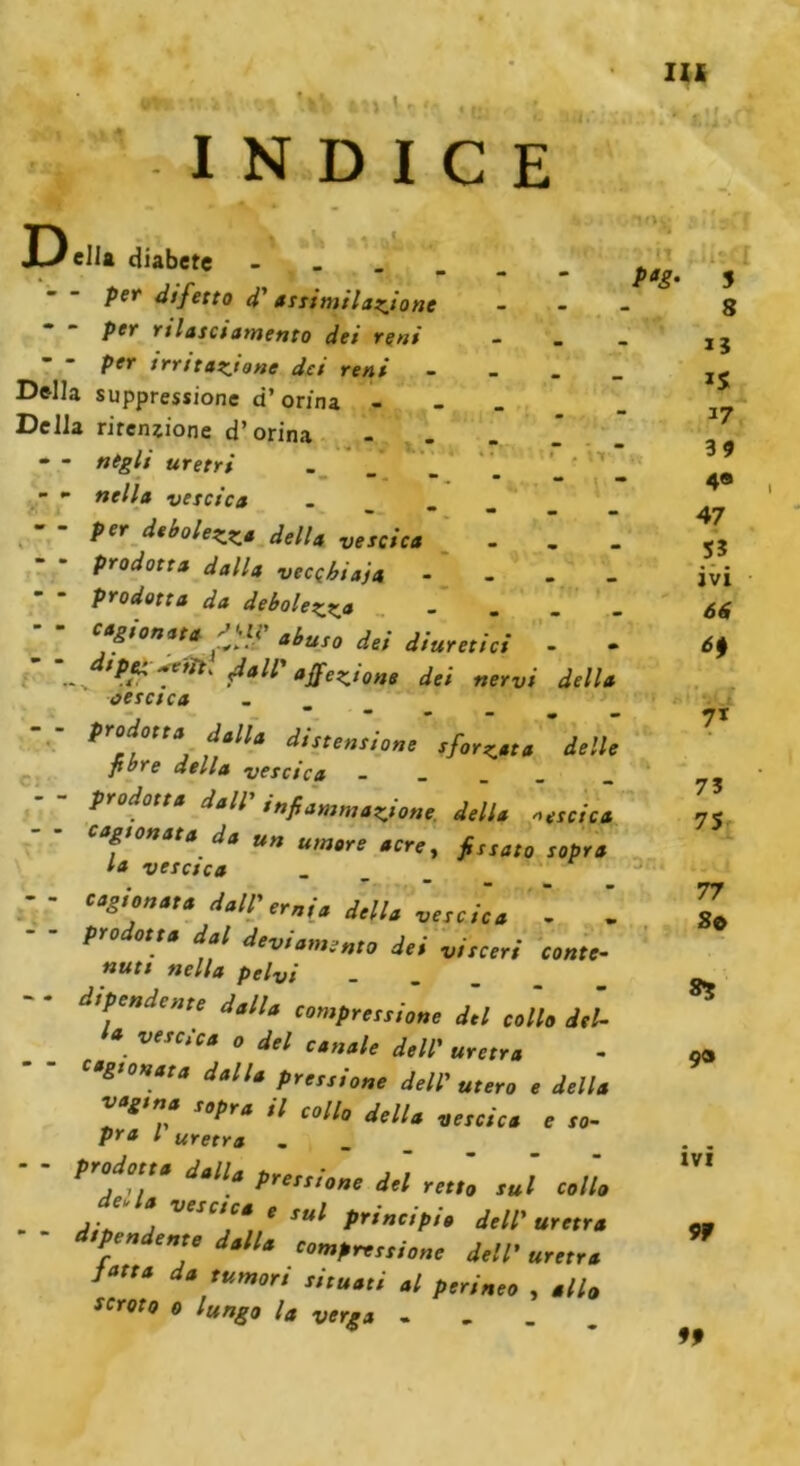 III
INDICE
Della diabete - - - - - - pag. 5
- - per difetto d' assimilazione - - - 8
- - per rilasciamento dei reni - - - 13
- - per irritazione dei reni - - - - 15
Della suppressione d' orina - - - - - 17
Della ritenzione d' orina - - - - - 39
- - negli uretri - - - - - - 40
- - nella vescica - - - - - - 47
- - per debolezza della vescica - - - 53
- - prodotta dalla vecchiaja - - - - ivi
- - prodotta da debolezza - - - - 66
- - cagionata abuso dei diuretici - - 69
- - dall' affezione dei nervi della
vescica - - - - - - - 71
- - prodotta dalla distensione sforzata delle
fibre della vescica - - - - - 73
- - prodotta dall' infiammazione della vescica 75
- - cagionata da un umore acre, fissato sopra
la vescica - - - - - - 77
- - cagionata dall' ernia della vescica - - 80
- - prodotta dal deviamento dei visceri conte-
nuti nella pelvi - - - - - 85
- - dipendente dalla compressione del collo del-
la vescica o del canale dell' uretra - 90
- - cagionata dalla pressione dell' utero e della
vagina sopra il collo della vescica e so-
pra l' uretra - - - - - - ivi
- - prodotta dalla pressione del retto sul collo
della vescica e sul principio dell' uretra 97
- - dipendente dalla compressione dell' uretra
fatta da tumori situati al perineo , allo
scroto o lungo la verga - - - - 99